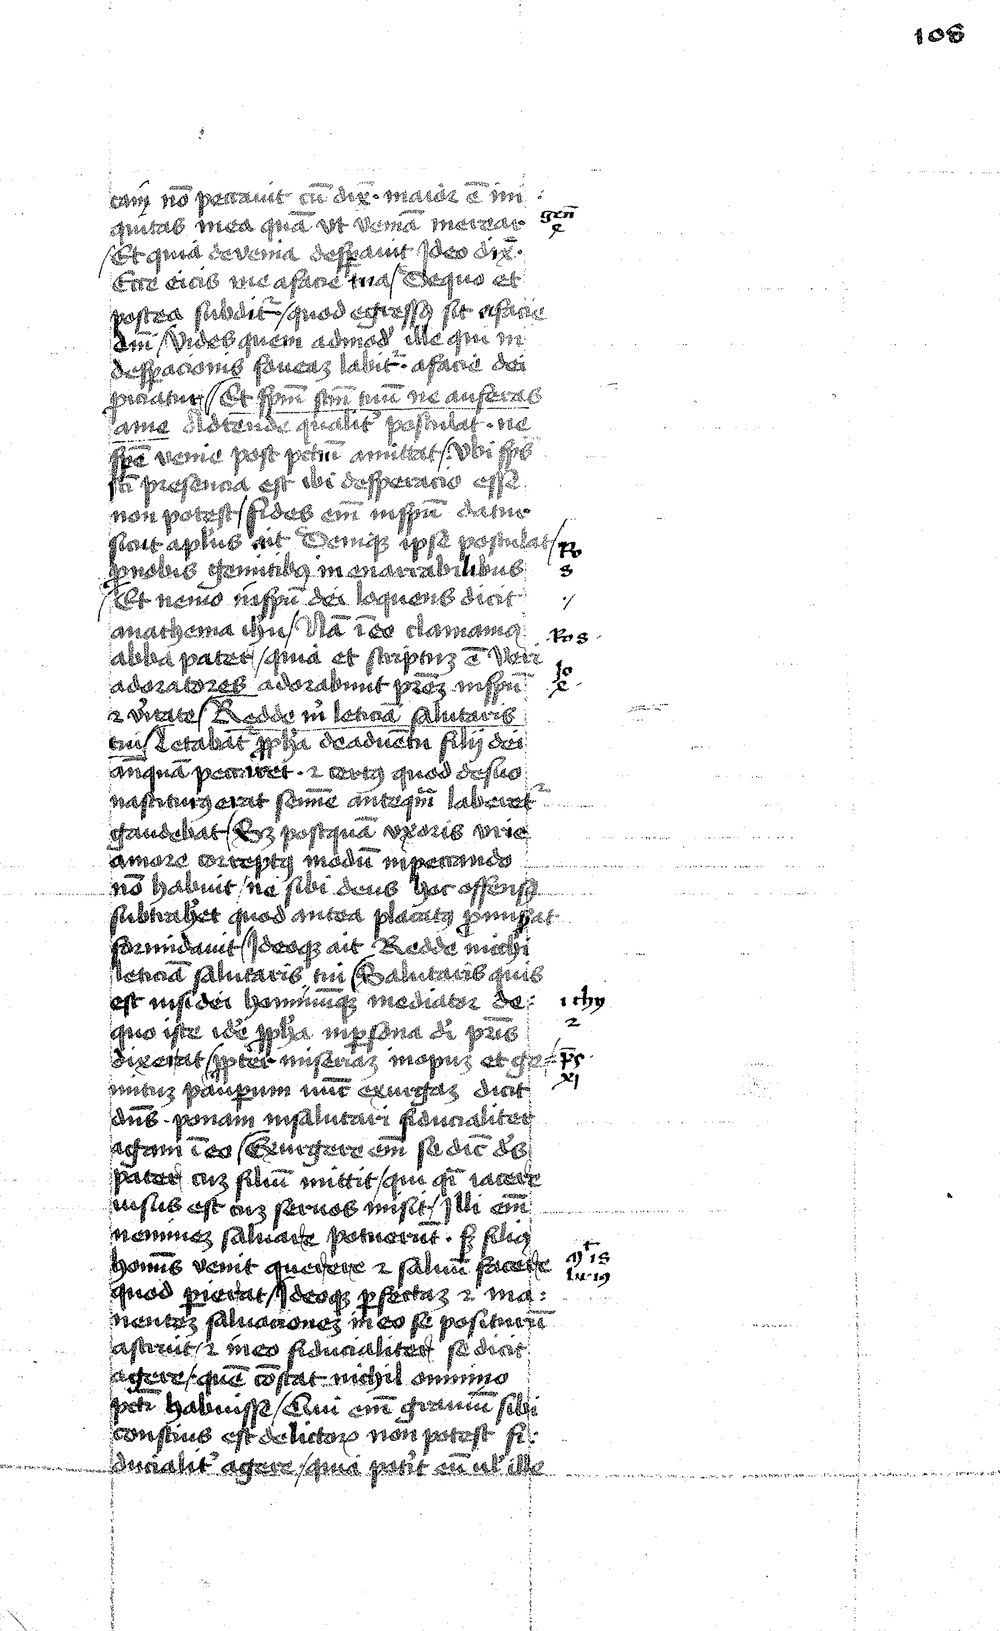 108
caiṇ nō peccauit cū dix̄· maior ē ini :
quitas mea quā vt veniā merear
gen̄
/Et quia de venia desꝑauit Ideo dix̄·
Ecce eicis me a facie tua/ De quo et
postea subditᷣ/ quod egressꝯ sit a facie
dn̄i/ Vides quem admodꝰ ille qui in
desꝑacionis foueaꝫ labitᷣ· a facie dei
ꝓiciatur// Et sp̄m sc̄m tuū ne auferas
a me Adtende qualitˀ postulat· ne
spē venie post pctm̄ amittat/ Vbi sp̄s
sc̄i presencia est ibi desperacio esse
non potest/ fides em̄ in sp̄u datur
sicut apl̄us ait Deniqꝫ ipse postulat/
Ro
8
ꝓ nobis gemitibꝯ inenarrabilibus
/Et nemo in sp̄u dei loquens dicit
anathema ihu/ Nā ī eo clamamꝯ
Ro 8
abba pater/ quia et scriptuꝫ ē Veri
adoratores adorabunt pr̄eꝫ in sp̄u
Io
⁊ vˀitate/ Redde mˀ leticiā salutaris
tui/ Letabat̄ ꝓph̄a de aduentu filij dei
an̄quā peccaret· ⁊ certꝯ quod de suo
nasciturꝯ erat semīe anteqm̄ laberetᷣ
gaudebat/ Sꝫ postquā vxoris vrie
amore correptꝯ modū in peccando
nō habuit/ ne sibi deus hoc offensꝯ
subtrahˀet quod antea placatꝯ ꝓmisˀat
formidauit/ Ideoqꝫ ait Redde michi
leticiā salutaris tui/ Salutaris quis
est nisi dei hominūqꝫ mediator de :
1 thy
2
quo iste idē ꝓph̄a in ꝑsona di pr̄is
dixerat/ ꝓpter miseriaꝫ inopuꝫ et ge=
p̄s
xj
mituꝫ pauꝑum nūc exurgaꝫ dicit
dn̄s· ponam in salutari fiducialiter
agam ī eo/ Exurgere em̄ se dic̄ dˀs
pater cuꝫ filiū mittit/ qui qi iacere
visus est cuꝫ seruos misit/ Illi em̄
nemineꝫ saluare potuerūt· sꝫ filiꝯ
homīs venit querere ⁊ saluū facere
mt 18
lu 19
quod ꝑierat/ Ideoqꝫ ꝑfectaꝫ ⁊ ma :
nenteꝫ saluacioneꝫ in eo se positurū
astruit/ ⁊ in eo fiducialiter se dicit
agere/ quē cōstat nichil omnino
pcti habuisse/ Qui em̄ grauiū sibi
conscius est delictoꝝ non potest fi :
ducialitˀ agere/ quia potˀit eū vl̄ ille